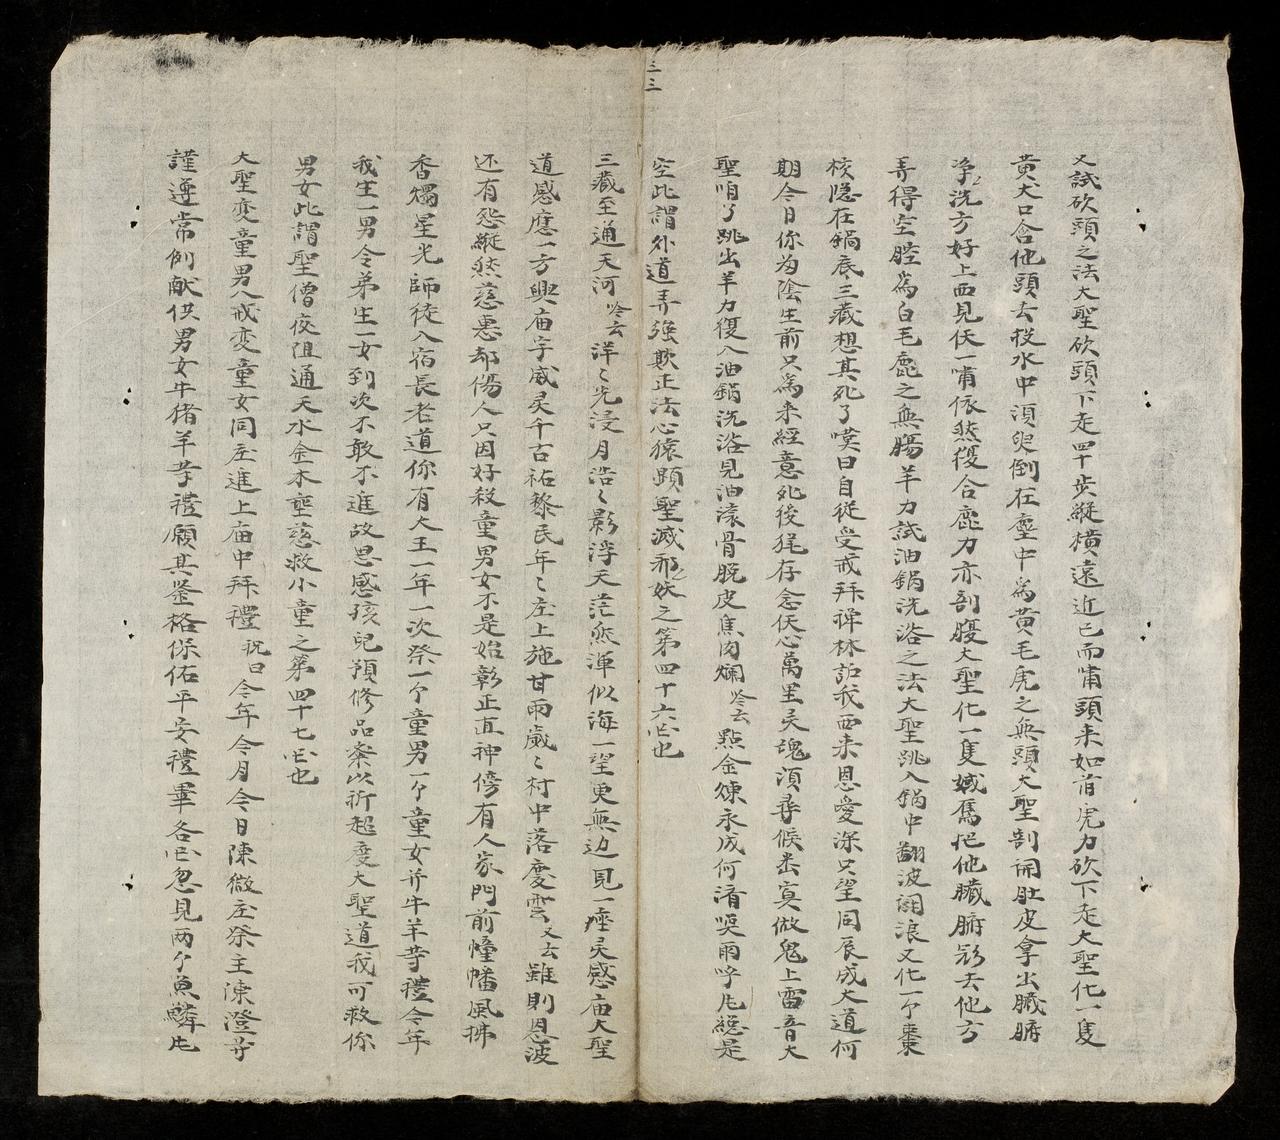 又試砍頭之法大聖砍頭下走四十步縱橫遠近已而嘯頭來如首虎力砍下走大聖化一隻
黃犬口含他頭去投水中須臾倒在塵中為黃毛虎之無頭大聖剖開肚皮拿出臟腑
净洗方好上西見佛一嘯依然複合鹿力亦剖腹大聖化一隻餓鳶把他臟腑去他方
弄得空腔為白毛鹿之無腸羊力試油鍋洗浴之法大聖跳入鍋中翻波洞浪又化一个棗
核隐在鍋底三藏想其死了嘆曰自從受戒拜禅林話我西來恩愛深只望同辰成大道何
期今日你为陰生前只為來經意死後猶存念佛心萬里灵魂須尋候來冥做鬼上雷音大
聖咱了跳出羊力復入油鍋洗浴見油滚骨脱皮焦肉爛 吟云 點金煉永成何濟喚雨呼風總是
空此謂外道弄強欺正法心猿顕聖滅邪妖之第四十六回也
三藏至通天河 吟云 洋〻光浸月浩〻影浮天茫然渾似海一望更無边見一座灵感庙大聖
道感應一方興庙宇威灵千古祐黎民年〻庄上施甘雨歲〻村中落慶雲 又云 雖則恩波
还有怨縱然慈惠却傷人只因好殺童男女不是始彰正直神傍有人家門前幢幡風拂
香燭星光師徒入宿長老道你有大王一年一次祭一个童男一个童女并牛羊等禮今年
我生一男令弟生一女到次不敢不進故思感孩兒預修品齋以祈超度大聖道我可救你
男女此謂聖僧夜阻通天水金木垂慈救小童之第四十七回也
大聖变童男八戒变童女同庄進上庙中拜禮 祝曰 今年今月今日陳微庄祭主陳澄等
謹遵常例献供男女牛猪羊等禮願其鉴格保佑平安禮畢各回忽見两个魚鱗
三三